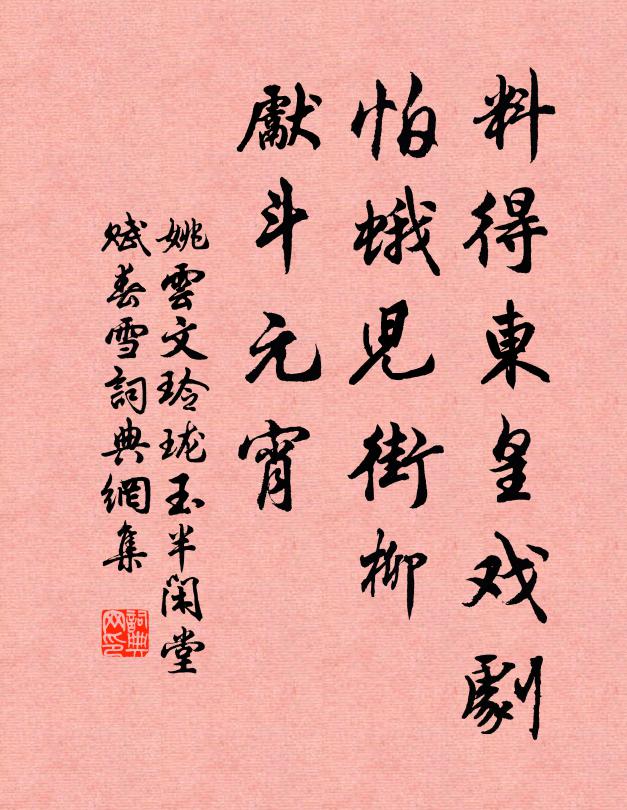 料得東皇戏劇
怕蛾児街柳
獻斗元宵
姚雲文玲珑玉半閑堂
赋春雪詞典網集
詞典網印